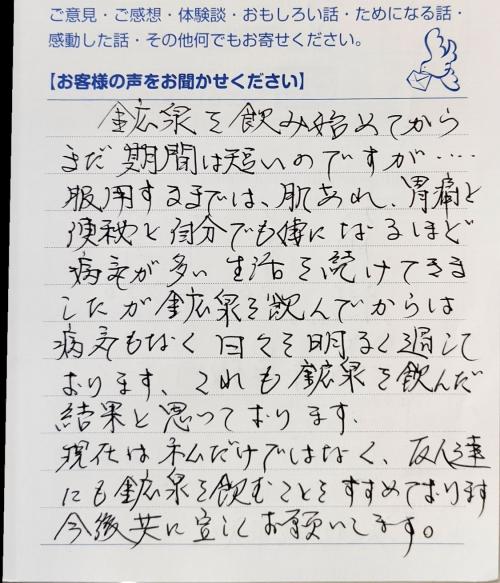 ご意見・ご感想・体験談・おもしろい話・ためになる話・
感動した話・その他何でもお寄せください。
【お客様の声をお聞かせください】
鉱泉を飲み始めてから
まだ期間は短いのですが‥‥
服用するまでは、肌あれ、胃痛と
便秘と自分でも嫌になるほど
病気が多い生活を続けてきま
したが鉱泉を飲んでからは
病気もなく日々を明るく過して
おります、これも鉱泉を飲んだ
結果と思っております.
現在は私だけではなく、友人達
にも鉱泉を飲むことをすすめております
今後共に宜しくお願いします。